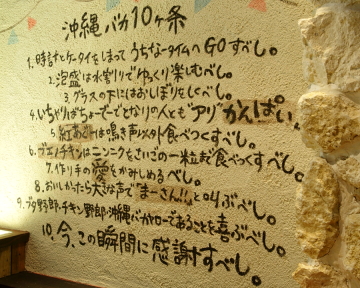 沖縄バカ10ヶ条
1.時計とケータイをしまってうちなータイムへGOすべし。
2.泡盛は水割りでゆっくり楽しむべし。
3.グラスの下にはおしぼりをしくべし。
4.いちゃりばちょーでーでとなりの人とも"アリ"かんぱい。
5.紅あぐーは鳴き声以外食べつくすべし。
6.ブエノチキンはニンニクをさいごの一粒まで食べつくすべし。
7.作り手の愛をかみしめるべし。
8.おいしかったら大きな声で"まーさん!!"と叫ぶべし。
9.ブタ野郎・チキン野郎・沖縄バカヤローであることを喜ぶべし。
10.今、この瞬間に感謝すべし。